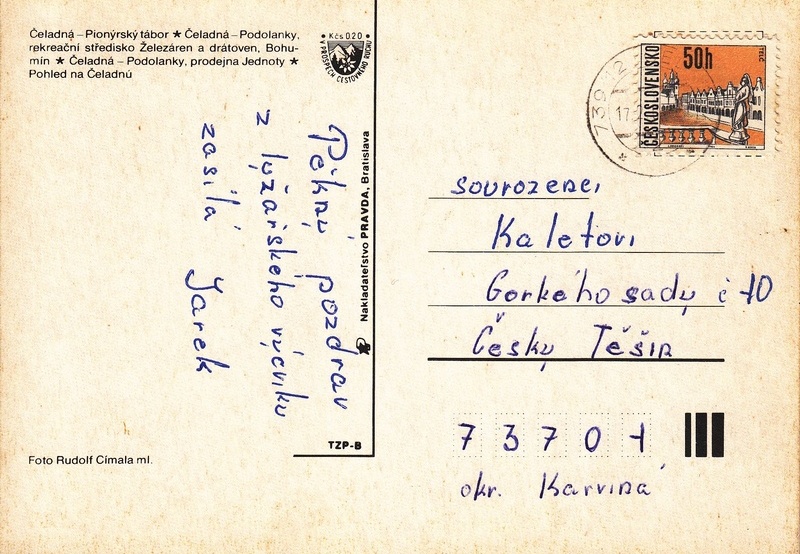 Čeladná – Pionýrský tábor ★ Čeladná – Podolanky,
rekreační středisko Železáren a drátoven, Bohu-
mín ★ Čeladná – Podolanky, prodejna Jednoty ★
Pohled na Čeladnú
Kčs 0,20
V PROSPĚCH CESTOVNÉHO RUCHU
Pěkný pozdrav
z lyžařského výcviku
zasílá Jarek
Nakladateľstvo PRAVDA, Bratislava
TZP-B
Foto Rudolf Címala ml.
739 12
17
ČESKOSLOVENSKO
50h
TELČ
sourozenci
Kaletovi
Gorkého sady č 10
Český Těšín
73701
okr. Karviná